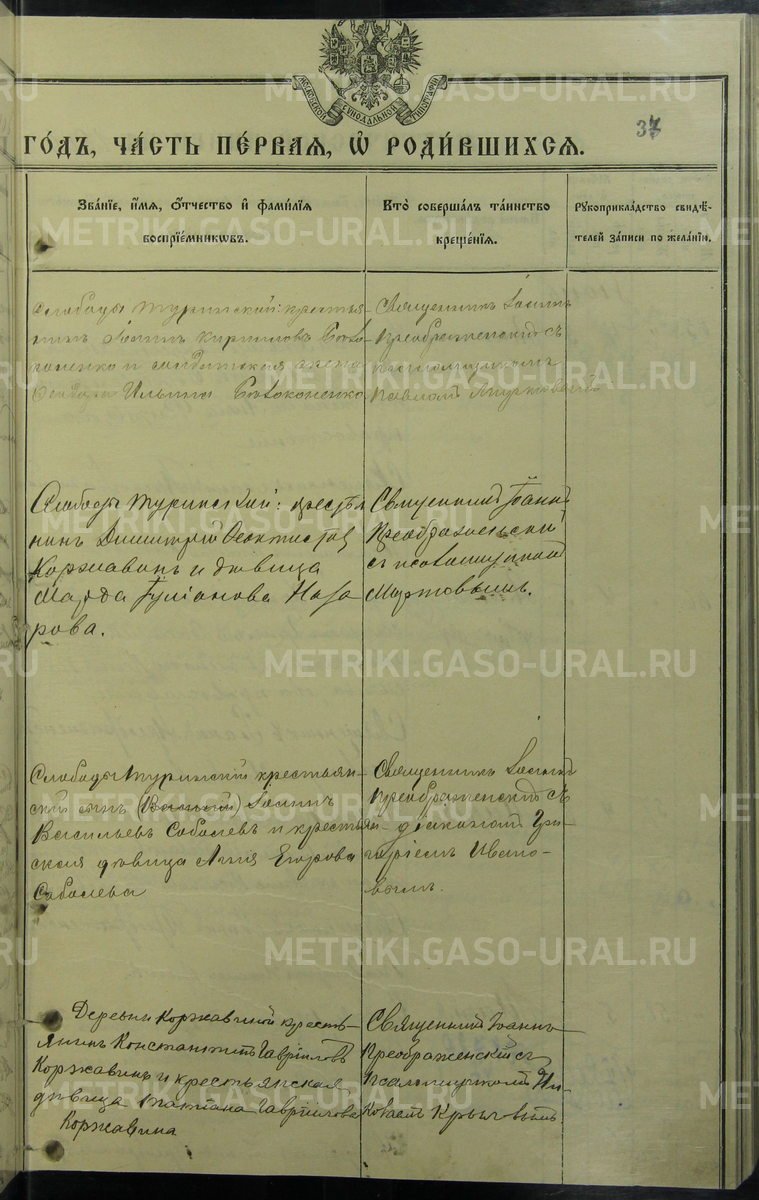 МОСКОВСКОЙ СѴНОДАЛЬНОЙ ТИПОГРАФІИ
37
ГО́ДЪ, ЧА́СТЬ ПЕ́РВАЯ, Ѡ҆ РОДИ́ВШИХСЯ.
Зва́нїе, и҆́мя, ѻ҆́тчество и҆ фами́лїя
воспрїе́мникѡвъ.
Кто̀ соверша́лъ та́инство
креще́нїѧ.
Рꙋкоприкла́дство свидѣ́-
телей за́писи по жела́нїю.
Слободы Туринской: крестья-
нинъ Іоаннъ Кириллов
и солдатская жена
Ильина
Священникъ Іоаннъ
Преображенский съ
псаломщикомъ
Павломъ
Слободы Туринской: крестья
нинъ Димитрій Феоктистов
Коржавинъ и дѣвица
Марѳа Иліанова Наза
рова.
Священникъ Іоаннъ
Преображенский
съ псаломщикомъ
Мартовымъ.
Слободы Туринской крестьян-
ский сынъ Іоаннъ
Васильевъ Соболевъ и крестьян-
ская дѣвица Анна Егорова
Соболева
Священникъ Іоаннъ
Преображенский съ
діакономъ Гри-
горіемъ Ивано-
вымъ.
Деревни Коржавиной кресть-
янинъ Константинъ Гавріиловъ
Коржавинъ и крестьянская
дѣвица Татіана Гавріилова
Коржавина
Священникъ Іоаннъ
Преображенский съ
Псаломщикомъ Ни-
колаемъ Крыловымъ
METRIKI.GASO-URAL.RU